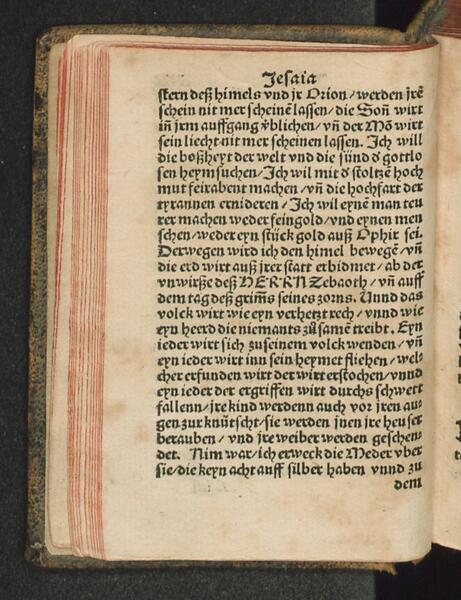 Jesaia
stern deß himels vnd jr Orion / werden jrẽ
schein nit mer scheinẽ lassen / die Soñ wirt
iñ jrm auffgang v̈blichen / vñ der Mõ wirt
sein liecht nit mer scheinen lassen. Ich will
die boßheyt der welt vnd die sünd d̕ gottlo
sen heymsuchen / Ich wil mit d̕ stoltzẽ hoch
mut feirabent machen / vñ die hochfart der
tyrannen ernideren / Ich wil eynẽ man teu
rer machen weder feingold / vnd eynen men
schen / weder eyn stück gold auß Ophir sei.
Derwegen wird ich den himel bewegẽ / vñ
die erd wirt auß jrer statt erbidmet / ab der
vnwirße deß HERRN Zebaoth / vñ auff
dem tag deß grim̃s seines zorns. Unnd das
volck wirt wie eyn verhetzt rech / vnnd wie
eyn heerd die niemants zůsamẽ treibt. Eyn
ieder wirt sich zu seinem volck wenden / vñ
eyn ieder wirt inn sein heymet fliehen / wel-
cher erfunden wirt der wirt erstochen / vnnd
eyn ieder der ergriffen wirt durchs schwett
fallenn / jre kind werdenn auch vor jren au-
gen zur knütscht / sie werden jnen jre heuser
berauben / vnd jre weiber werden geschen-
det. Nim war / ich erweck die Meder vber
sie / die keyn acht auff silber haben vnnd zu
dem